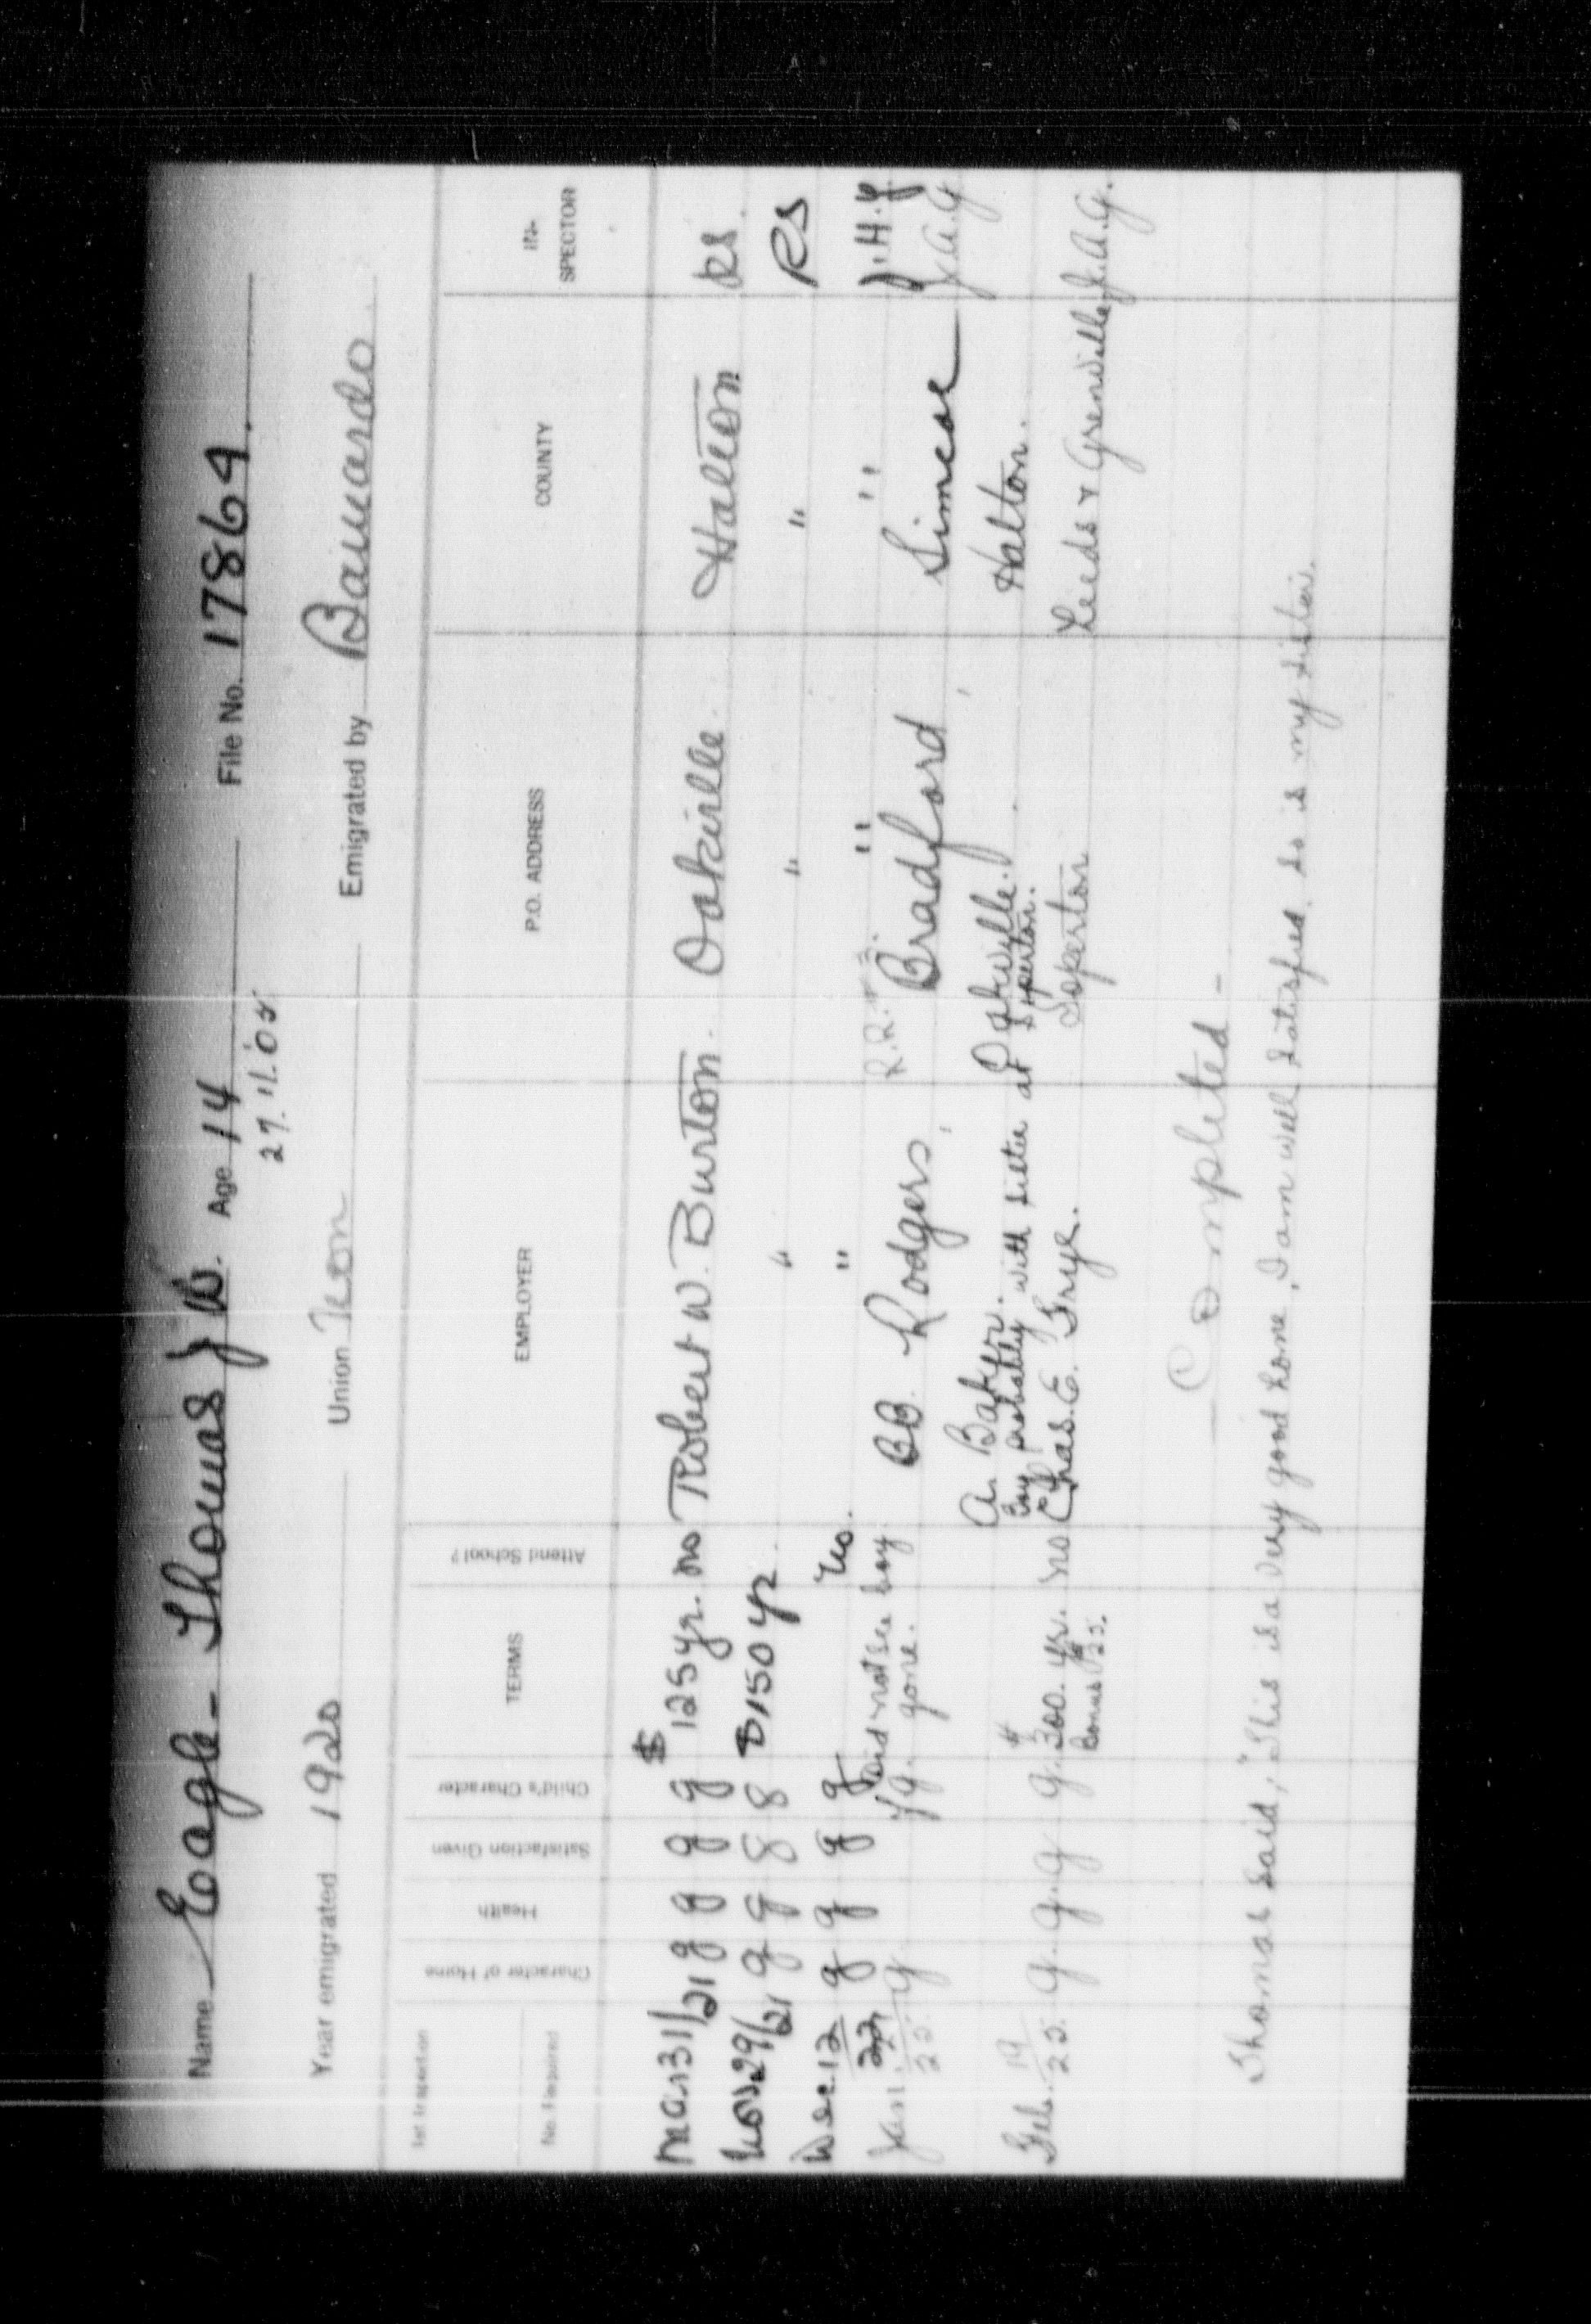 Name Eagle - Thomas J W. Age 14 File No. 17864.
27.11.05
Year emigrated 1920 Union Non Emigrated by Barnardo
1st Inspection No. Required Character of Home Health Satisfaction Given Child's Character TERMS Attend School? EMPLOYER P.O. ADDRESS COUNTY IN-SPECTOR
Mar 31/21 g g g g $125 yr. no Robert W. Burton. Oakville. Halton RS.
Nov 29/21 g g g g $150 yr " " " RS
Dec. 12/22 g g g g no. " " " J.H.Y
Jan. 25. g. fg. Did not see boy gone. BB Rodgers, R.R. #3. Bradford, Simcoe J.A.G
A. Baker. Oakville. Halton.
Boy probably with sister at Soperton.
Feb. 19/25. g. g. g. g. $300. yr. no Chas. E. Frye. Soperton Leeds & Grenville J.A.G.
Bonus $25.
- Completed -
Thomas said, "This is a very good home, I am well satisfied. So is my sister.